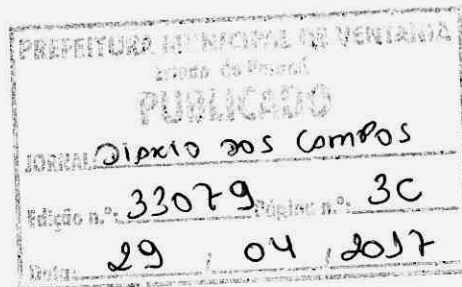 PREFEITURA MUNICIPAL DE VENTANIA
Estado do Paraná
PUBLICADO
JORNAL: Diario dos Campos
Edição n.º: 33079 Página n.º: 3C
Data: 29 / 04 / 2017